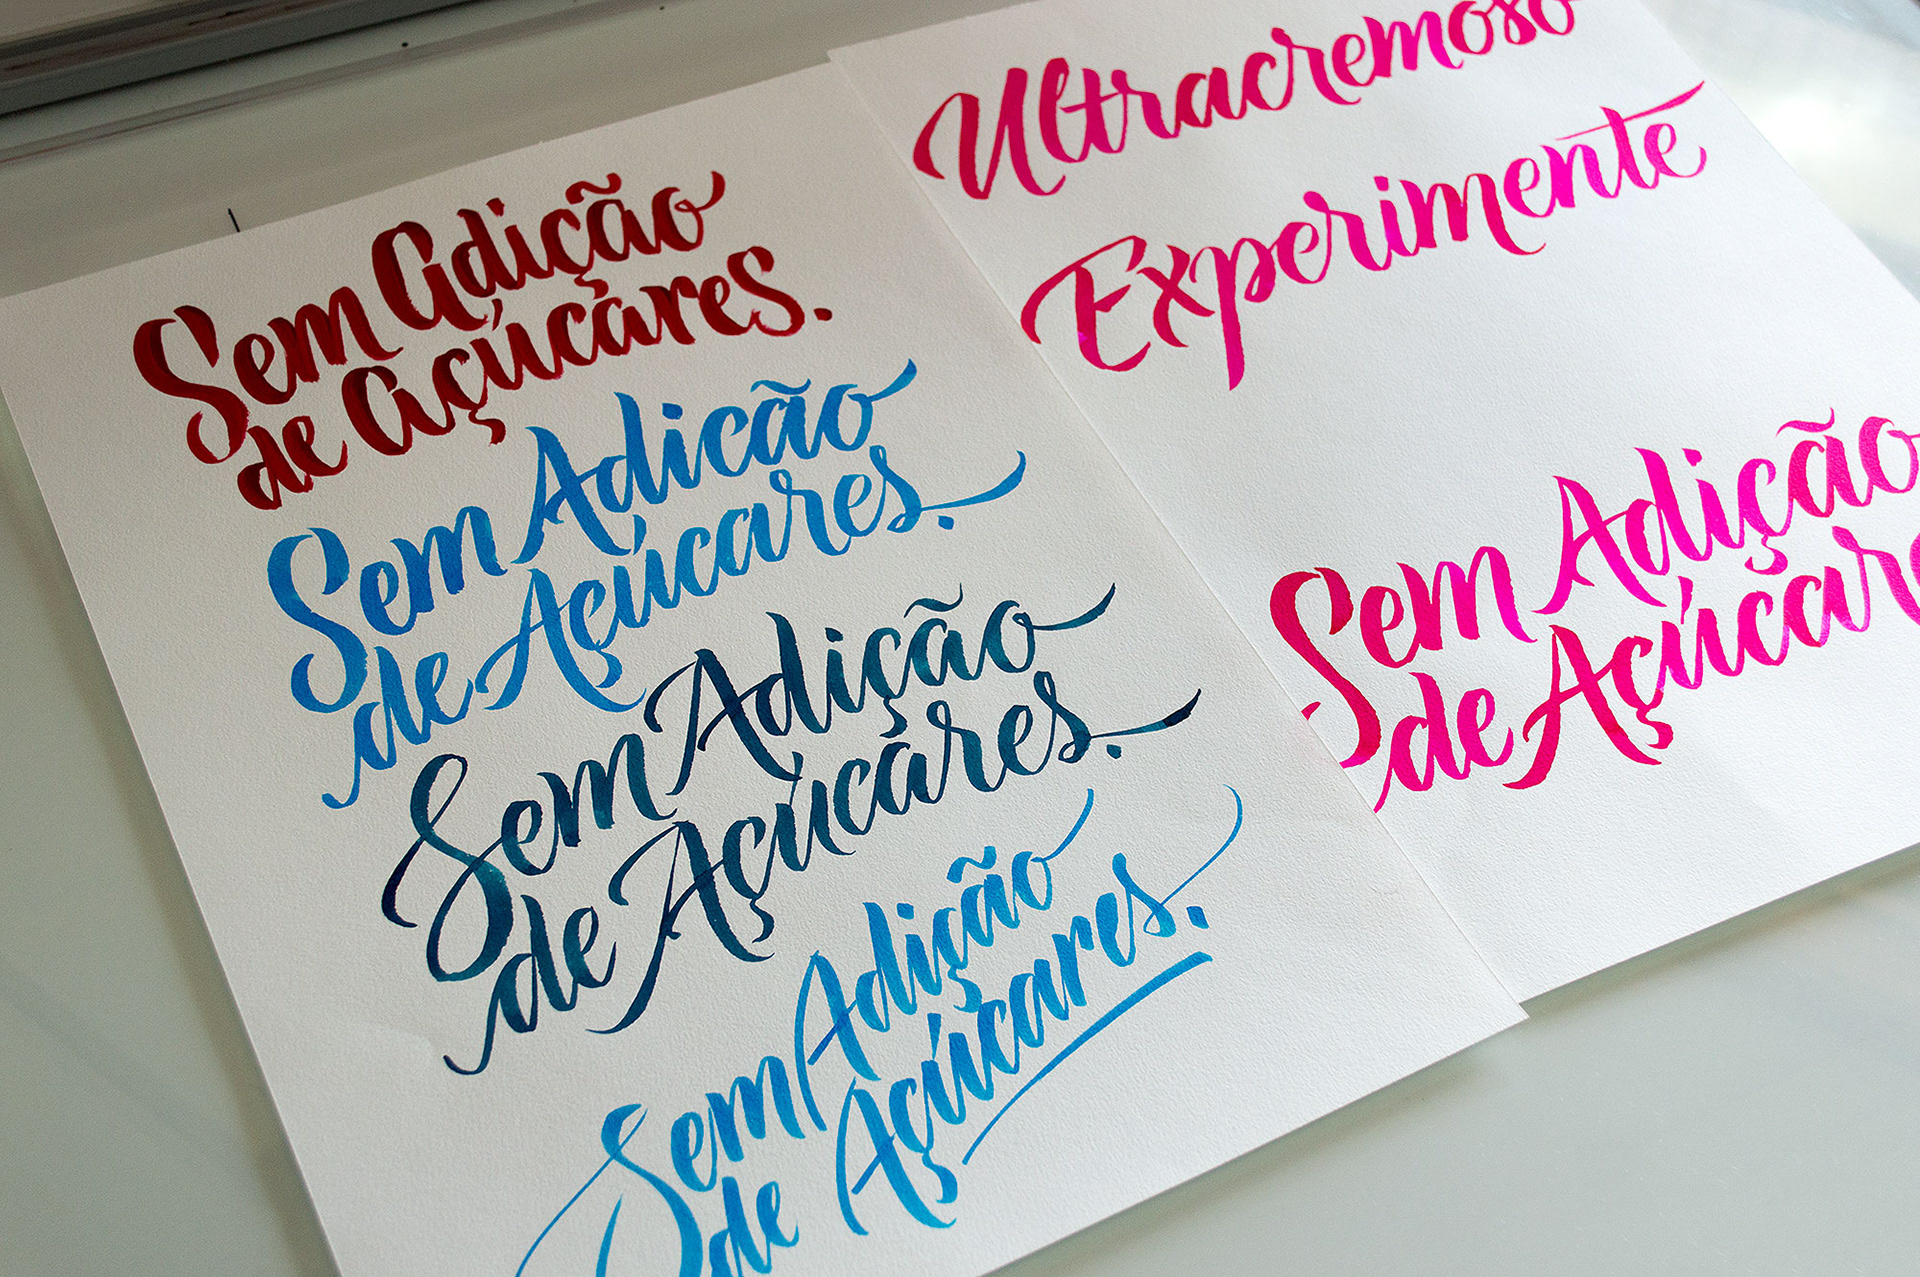 Sem Adição
de Açúcares.
Sem Adicão
de Açúcares.
Sem Adição
de Açúcares.
Sem Adição
de Açúcares.
Ultracremoso
Experimente
Sem Adição
de Açúcare